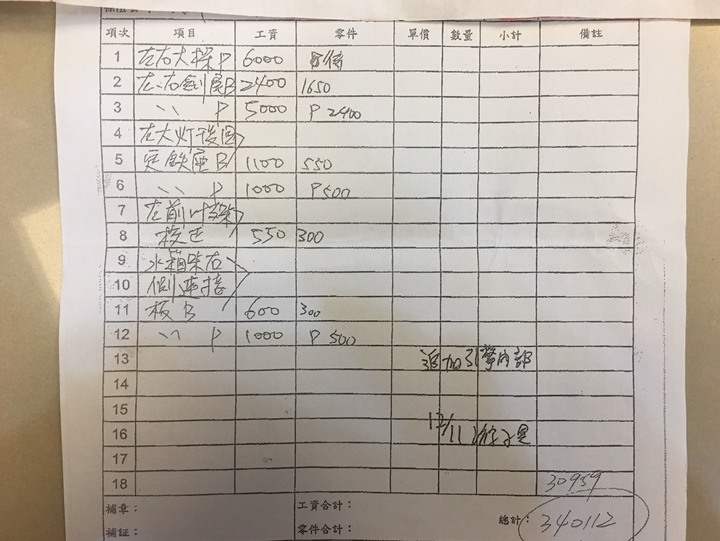 項次 項目 工資 零件 單價 數量 小計 備註
1 左右大樑 P 6000
2 左右 B 2400 1650
3 〃 P 5000 P 2400
4 左大灯後
5 鐵座B 1100 550
6 〃 P 1000 P 500
7 左前
8 校正 550 300
9 水箱架右
10 側連接
11 板 B 600 300
12 〃 P 1000 P 500
13 追加引擎內部
14
15
16 12/11
17
18 30959
補章： 工資合計： 總計：340112
補証： 零件合計：